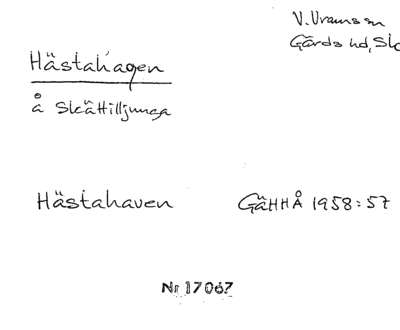 V. Vramss n
Gärds hd, Sk
Hästahagen
å Skättilljunga
Hästahaven GäHHÅ 1958:57
Nr 17067